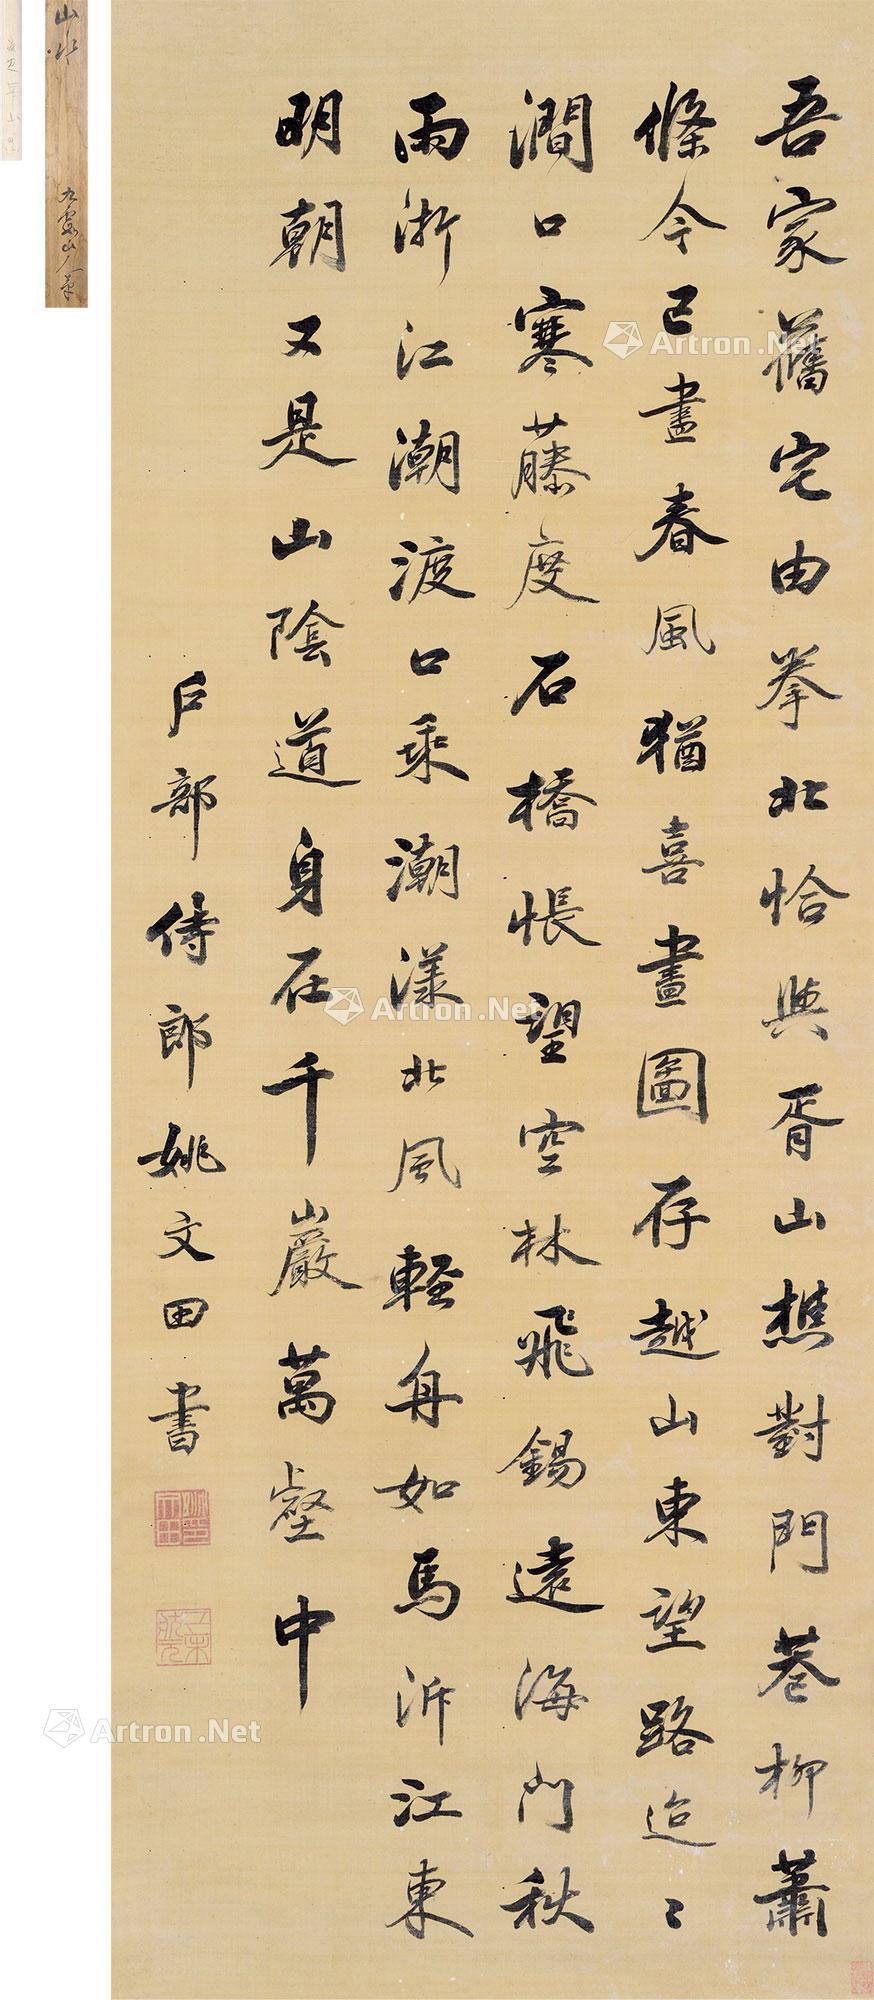 吾家舊宅由拳北恰與胥山樵對門巷柳蕭
條今已盡春風猶喜畫圖存越山東望路迢〻
澗口寒藤度石橋悵望空林飛錫遠海門秋
雨浙江潮渡口乘潮漾北風輕舟如馬泝江東
明朝又是山陰道身在千巖萬壑中
戶部侍郎姚文田書
山水
Artron.Net
Artron.Net
Artron.Net